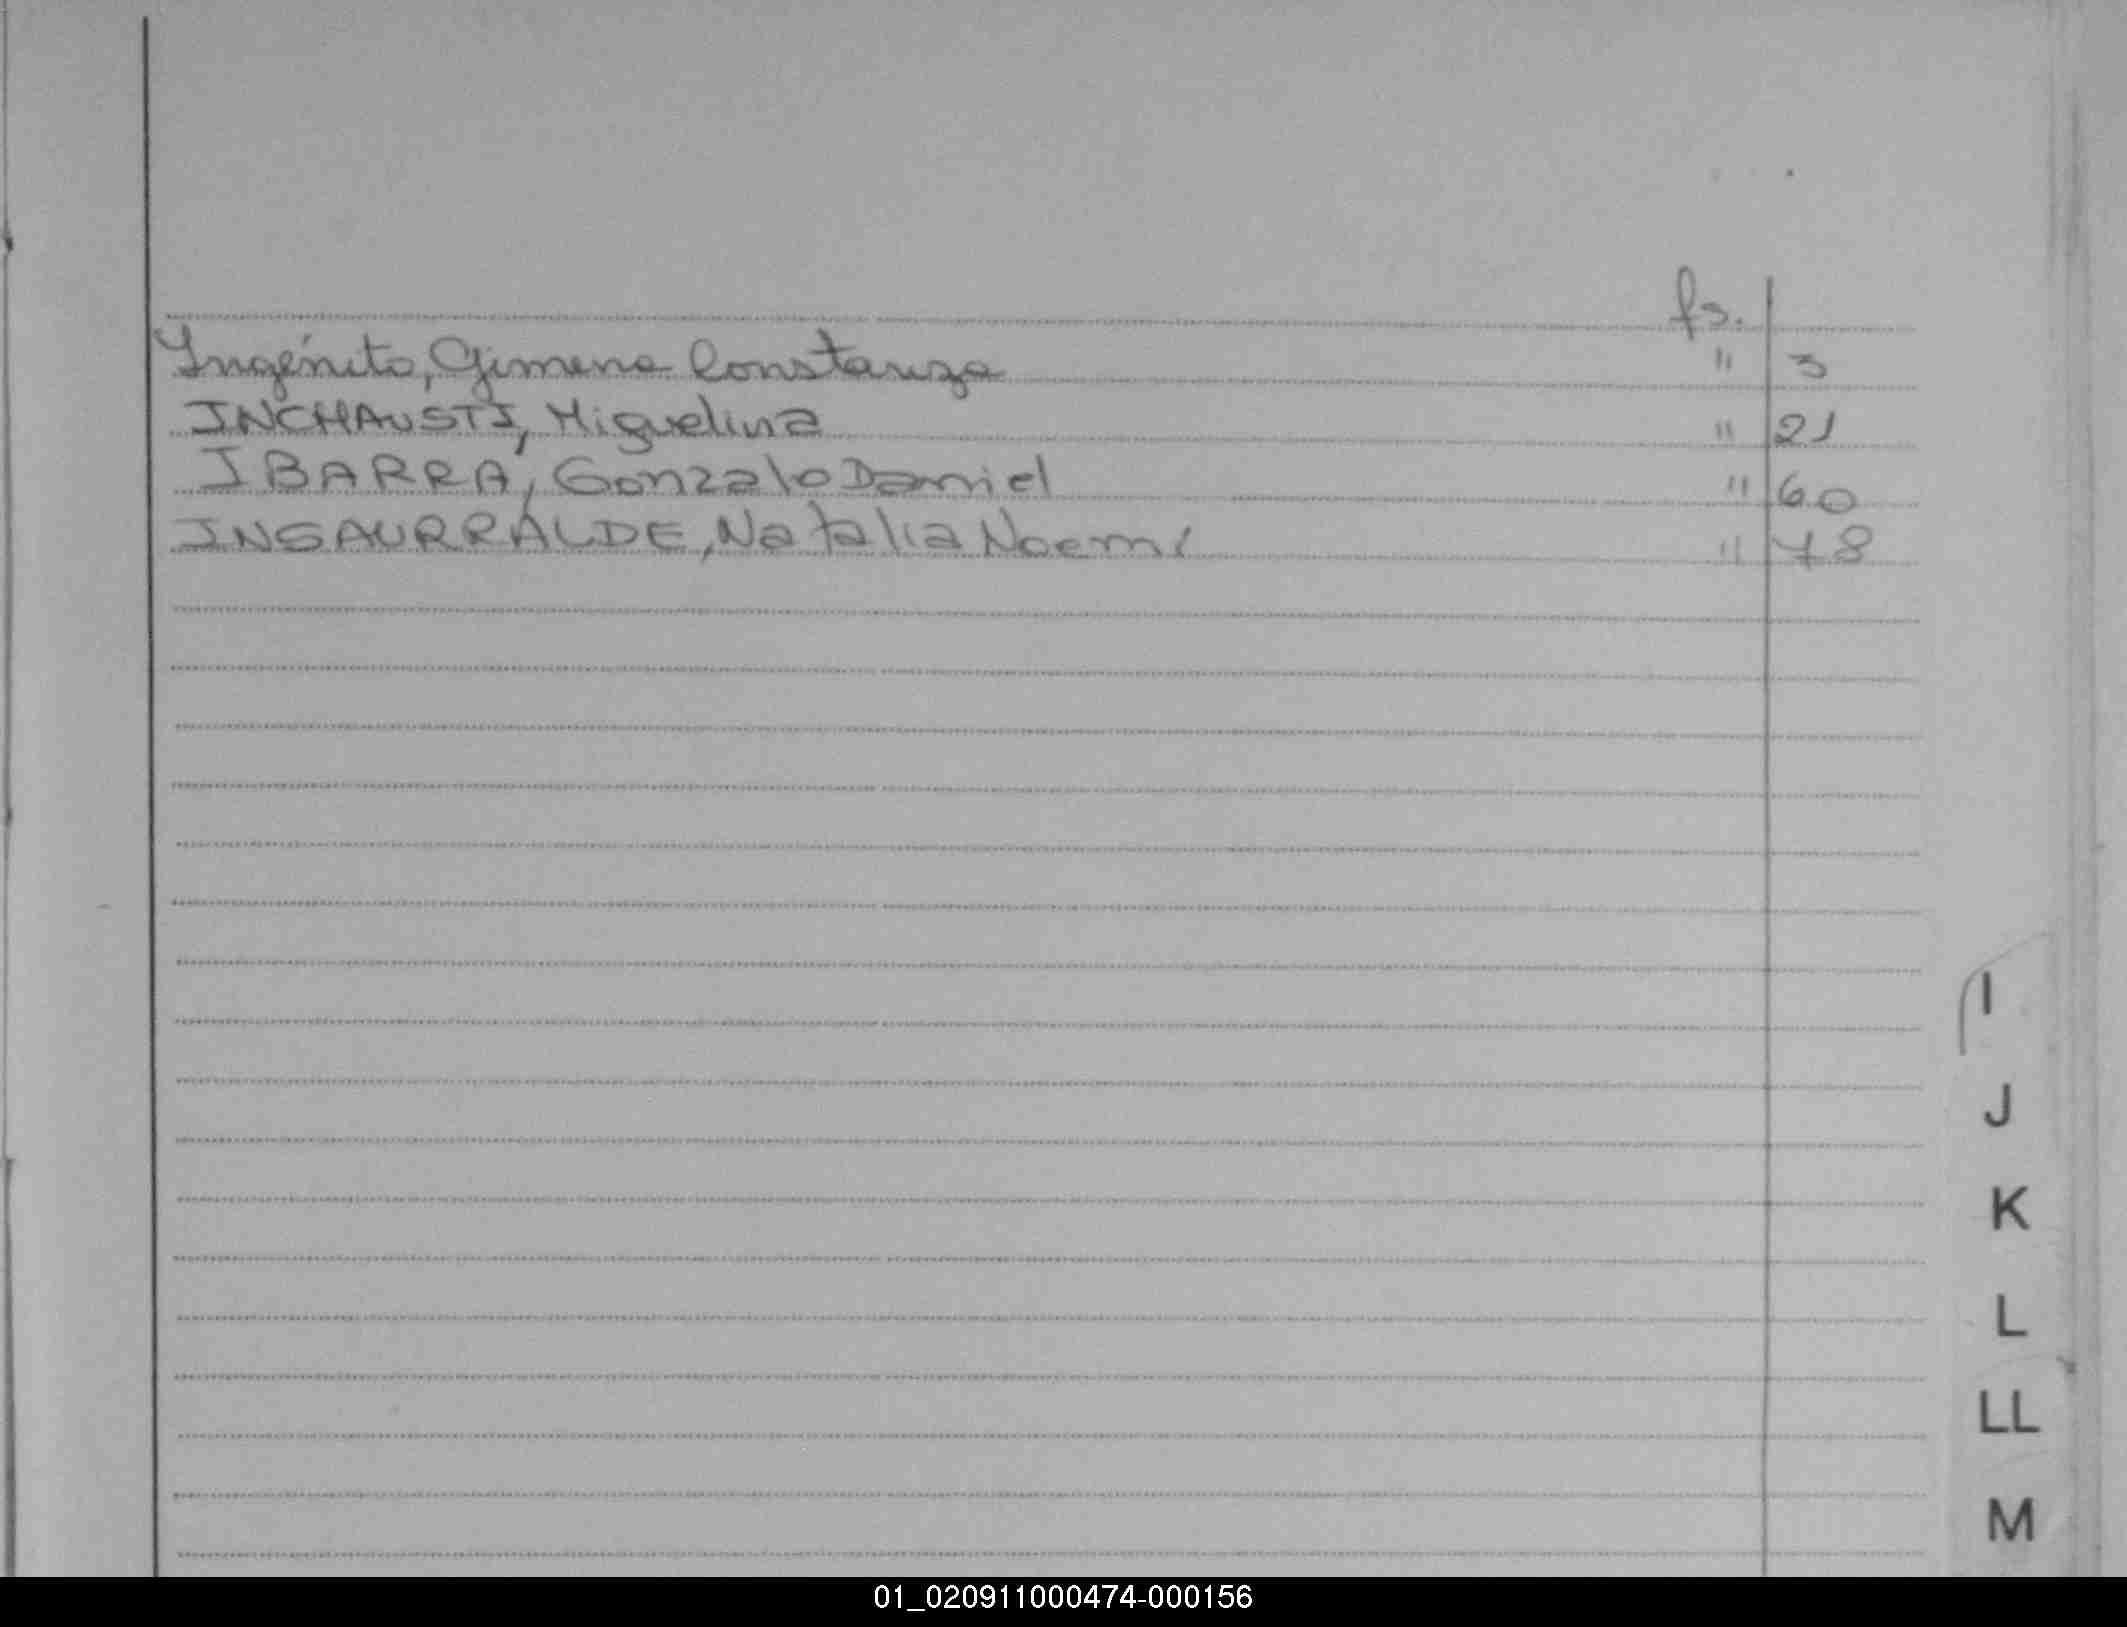 fs.
Ingénito, Gimena Constanza " 3
INCHAUSTI, Miguelina " 21
IBARRA, Gonzalo Daniel " 60
INSAURRALDE, Natalia Noemí " 78
I
J
K
L
LL
M
01_020911000474-000156